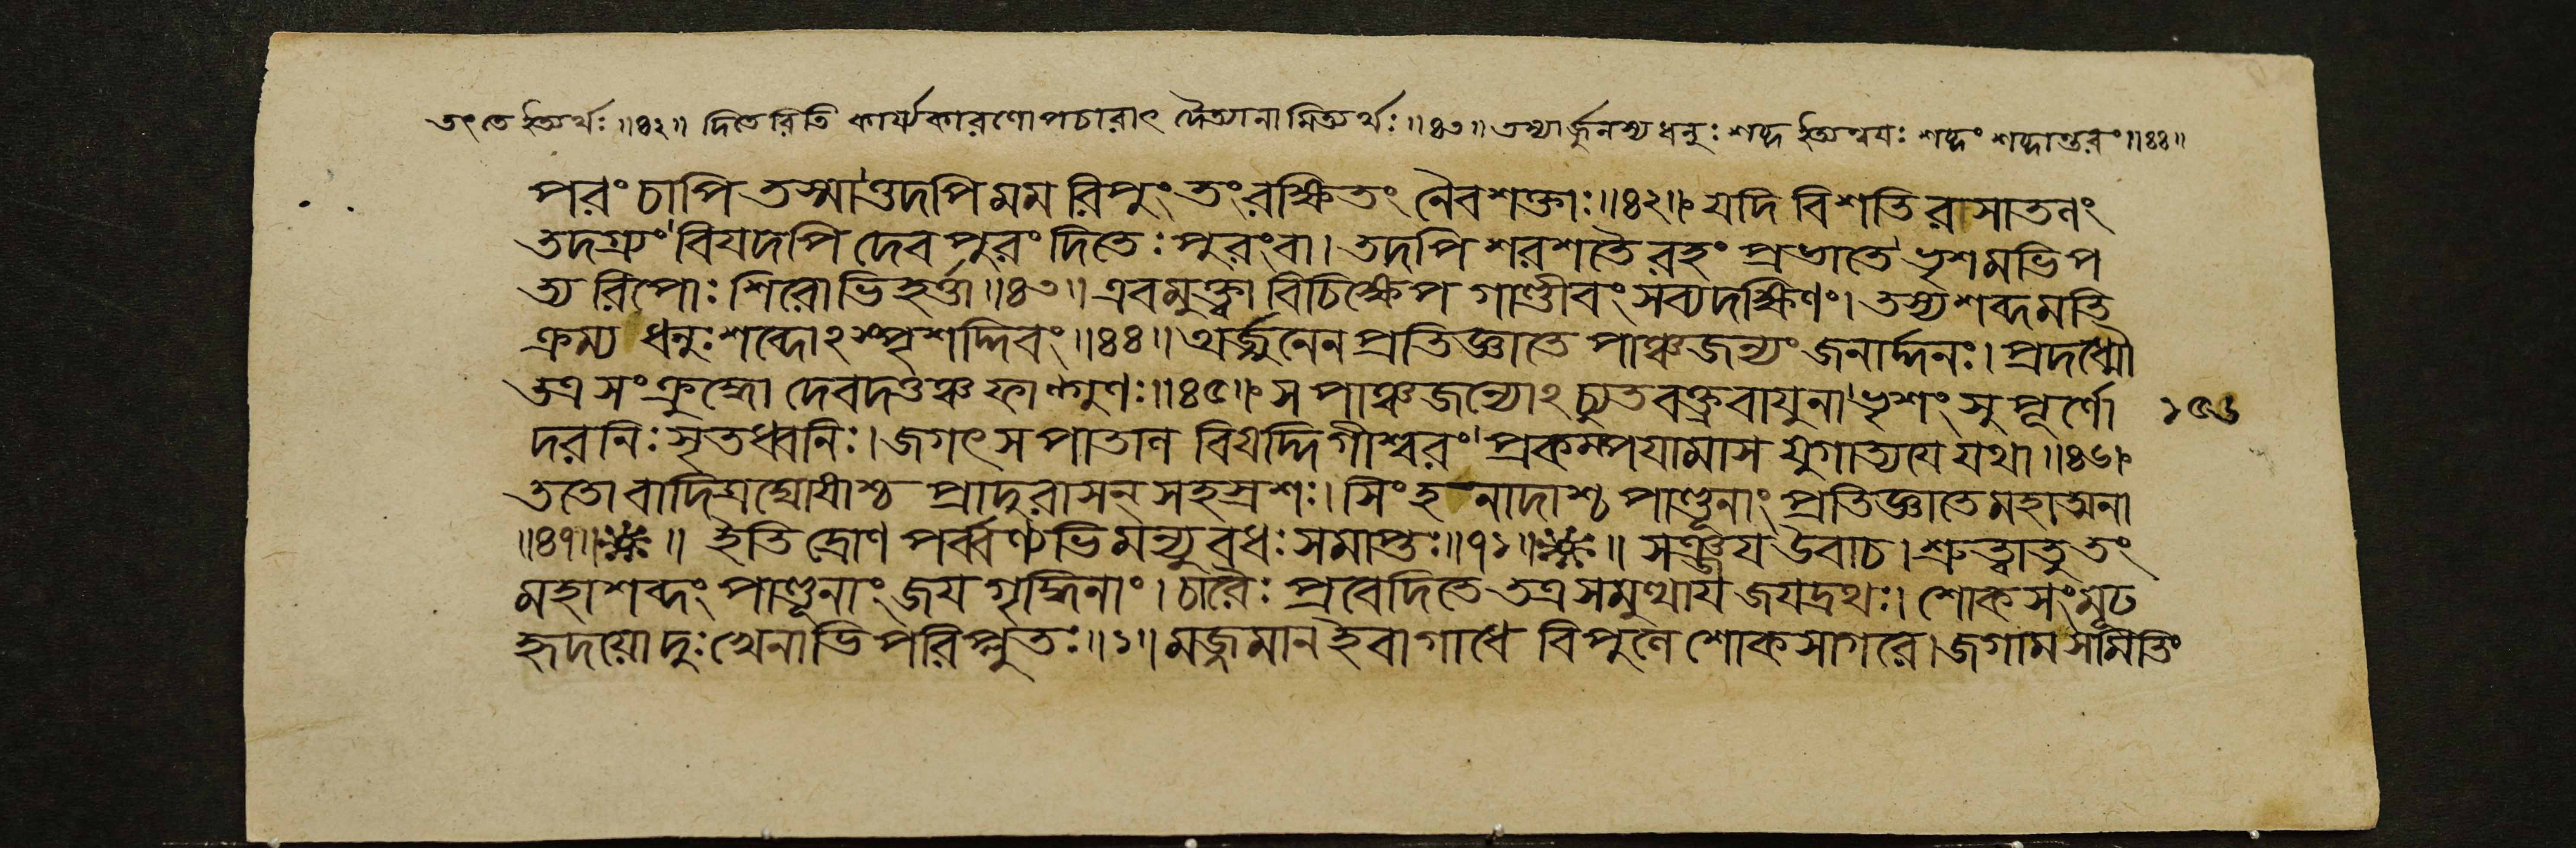 তং তে ইত্যর্থঃ ॥৪২॥ দিতেরিতি কার্য্যকারণোপচারাৎ দৈত্যানামিত্যর্থঃ ॥৪৩॥ তথার্জুনস্য ধনুঃ শব্দ ইত্যন্বযঃ শব্দং শব্দান্তরং ॥৪৪॥
পরং চাপি তস্মাত্তদপি মম রিপুং তং রক্ষিতং নৈব শক্তাঃ ॥৪২॥ যদি বিশতি রসাতলং
তদগ্র্যং বিযদপি দেবপুরং দিতেঃ পুরং বা । তদপি শরশতৈরহং প্রভাতে ভৃশমভিপ
ত্য রিপোঃ শিরোভিহর্ত্তা ॥৪৩॥ এবমুক্ত্বা বিচিক্ষেপ গাণ্ডীবং সব্যদক্ষিণং । তস্য শব্দমতি
ক্রম্য ধনুঃশব্দোঽস্পৃশদ্দিবং ॥৪৪॥ অর্জ্জুনেন প্রতিজ্ঞাতে পাঞ্চজন্যং জনার্দ্দনঃ । প্রদধ্মৌ
তত্র সংক্রুদ্ধো দেবদত্তঞ্চ ফাল্গুণঃ ॥৪৫॥ স পাঞ্চজন্যোঽচ্যুতবক্ত্রবাযুনা ভৃশং সুপূর্ণো
দরনিঃসৃতধ্বনিঃ । জগৎ সপাতাল বিযদ্দিগীশ্বরং প্রকম্পযামাস যুগাত্যযে যথা ॥৪৬॥
ততো বাদিত্রঘোষাশ্চ প্রাদুরাসন্ সহস্রশঃ । সিংহনাদাশ্চ পাণ্ডূনাং প্রতিজ্ঞাতে মহাত্মনা
॥৪৭॥ ॥ ইতি দ্রোণপর্ব্বণ্যভিমন্যুবধঃ সমাপ্তঃ ॥৭১॥ ॥ সঞ্জয উবাচ । শ্রুত্বা তু তং
মহাশব্দং পাণ্ডূনাং জযগৃদ্ধিনাং । চারৈঃ প্রবেদিতে তত্র সমুত্থায জযদ্রথঃ । শোকসংমূঢ
হৃদযো দুঃখেনাভিপরিপ্লুতঃ ॥১॥ মজ্জমান ইবাগাধে বিপুলে শোকসাগরে । জগাম সমিতিং